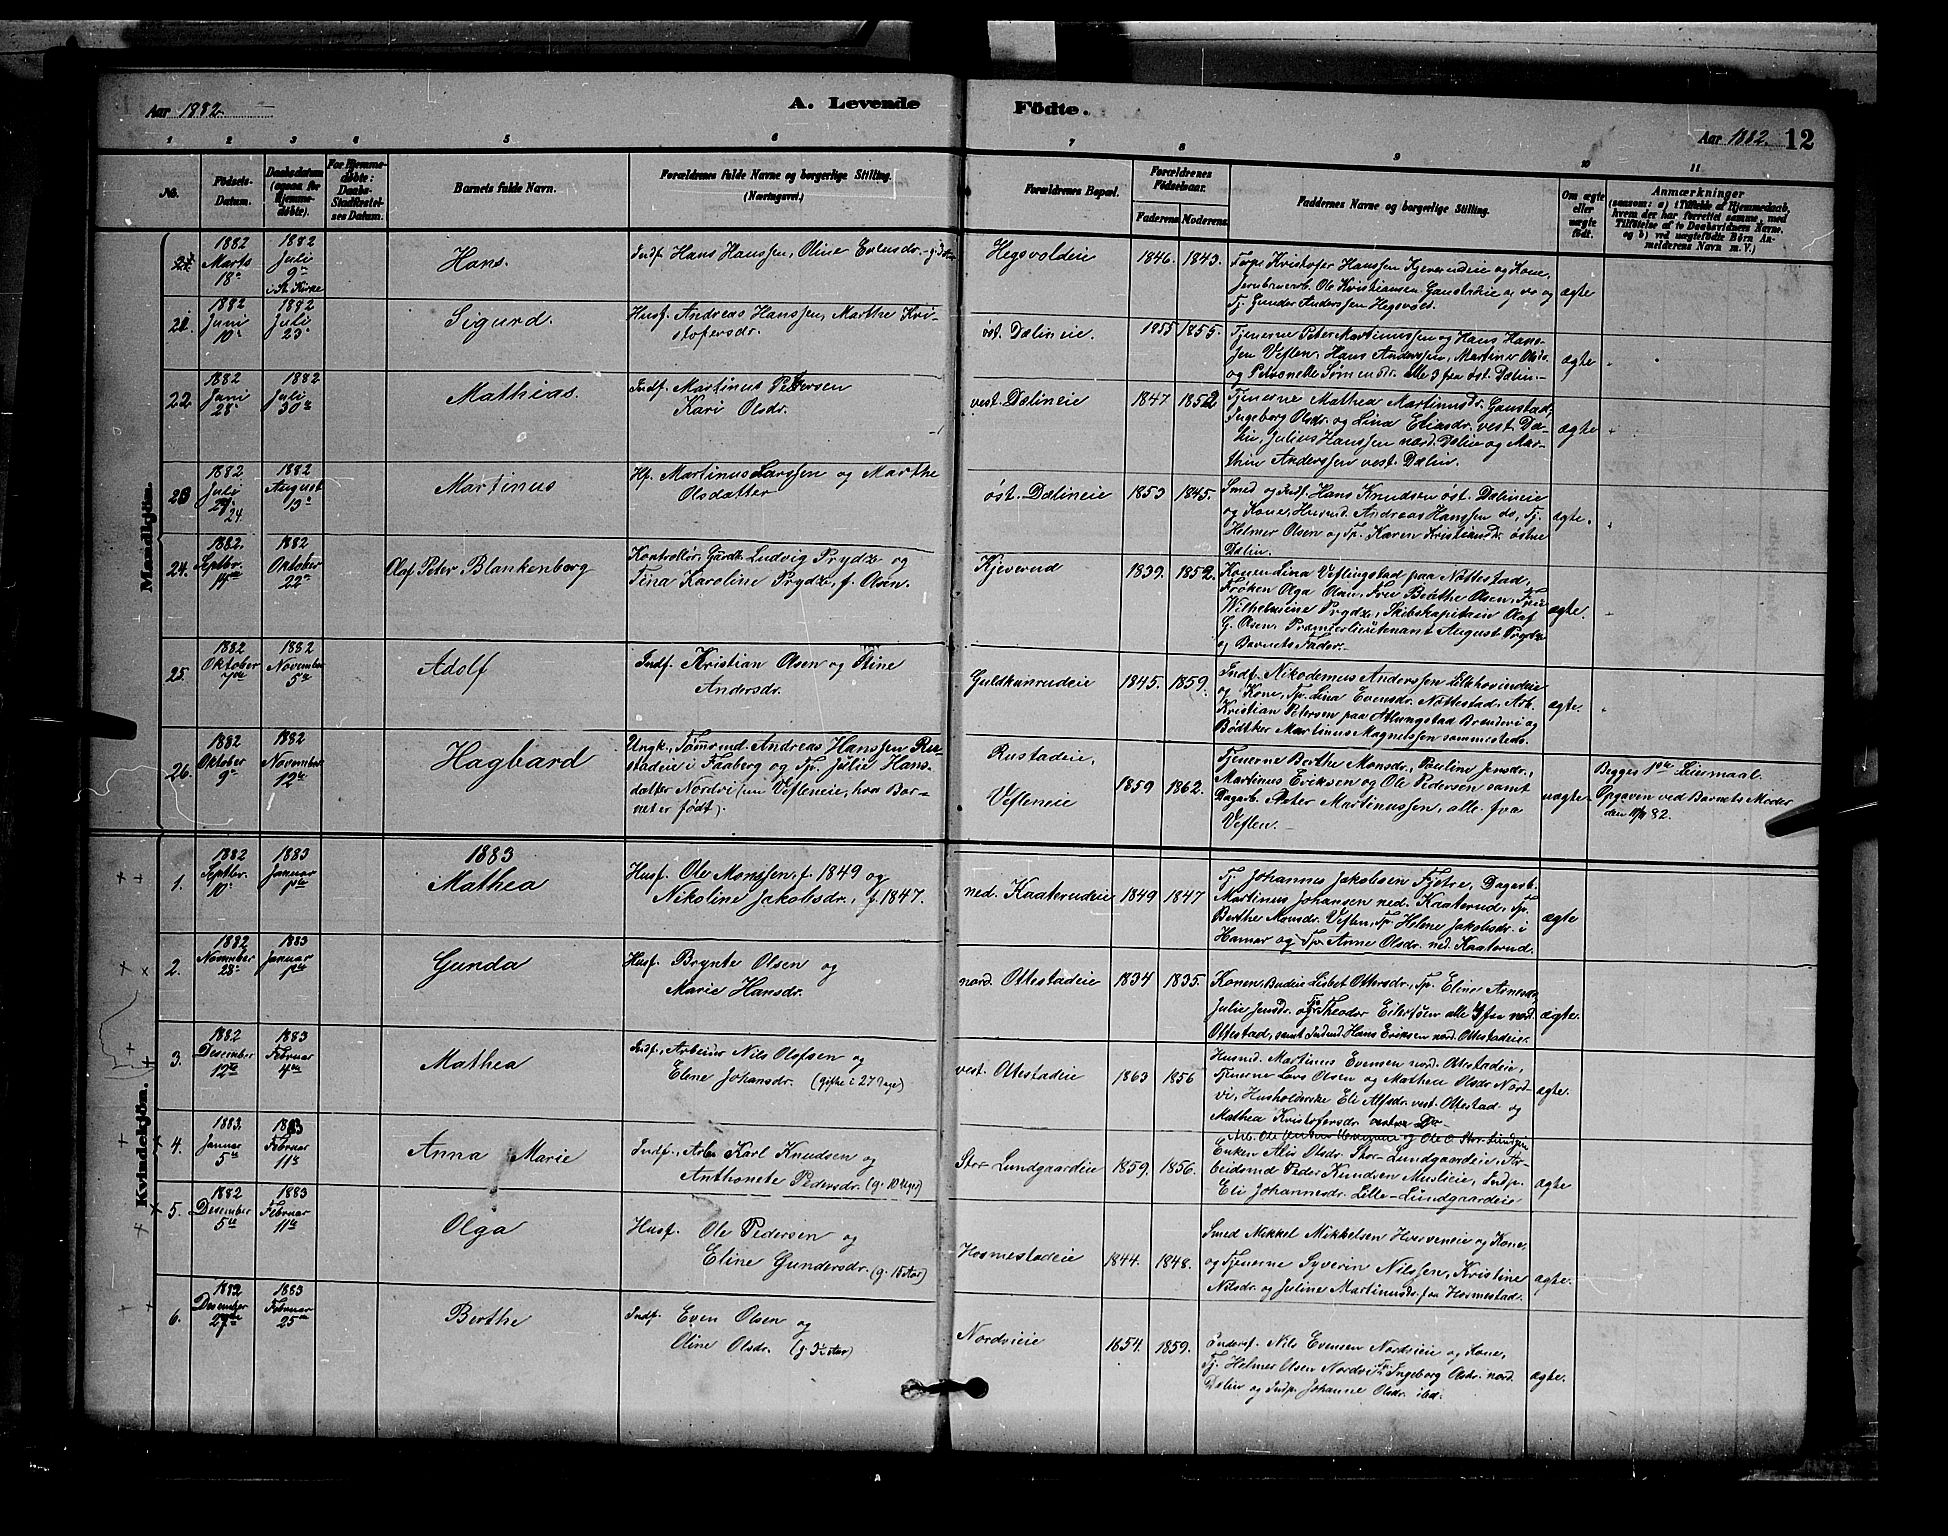 Aar 1882.
A. Levende
Födte.
Aar 1882. 12
1 2 3 4 5 6 7 8 9 10 11
No.
Födsels-
Datum.
Daabsdatum
(ogsaa for
Hjemme-
döbte).
For Hjemme-
döbte:
Daabs-
Stadfæstel-
ses Datum.
Barnets fulde Navn.
Forældrenes fulde Navne og borgerlige Stilling.
(Næringsvei.)
Forældrenes Bopæl.
Forældrenes
Födselsaar.
Faderens
Moderens
Faddernes Navne og borgerlige Stilling.
Om ægte
eller
uægte
födt.
Anmærkninger
(saasom: a) i Tilfælde af Hjemmedaab,
hvem der har forrettet samme, med
Tilföielse af to Daabsvidners Navne,
og b) ved uægtefödte Börn An-
melderens Navn m. V.)
Mandkjön.
1882
Marts
18de
1882
Juli
9de
i St. Kirke
Hans.
Indf. Hans Hanssen, Oline Evensdr.
Hegsvoldeie
1846. 1843.
Kristofer Hanssen Kjeverudeie og Kone,
Jernbanearb. Ole Kristiansen Gaustadeie og
Tj. Gunder Anderssen Hegsvold.
ægte
21.
1882
Juni
10de
1882
Juli
23de
Sigurd.
Husf. Andreas Hanssen, Marthe Kri-
stofersdr.
öst. Dælineie.
1855 1855.
Tjenerne Peter Martinussen og Hans Hans-
sen Veflen, Hans Anderssen, Martines Olsdr.
og Petronelle alle 3 fra öst. Dælin.
ægte
22.
1882
Juni
28de
1882
Juli
30te
Mathias.
Indf. Martinus Pedersen
Kari Olsdr.
vest. Dælineie
1847 1852
Tjenerne Mathea Martinusdr. Gaustad,
Ingeborg Olsdr. og Lina Eliasdr. vest. Dæ-
lin, Julius Hanssen nord. Dælin og Mar-
thin Anderssen vest. Dælin.
ægte
23
1882
Juli
24.
1882
August
13de
Martinus
Hf. Martinus Larssen og Marthe
Olsdatter
öst. Dælineie
1853 1845.
Smed og Indf. Hans Knudsen öst. Dælineie
og Kone, Husmd. Andreas Hanssen do, Tj.
Helmer Olsen og Tp. Karen Kristiansd. östre
Dælin.
ægte.
24.
1882.
Septbr.
14de
1882
Oktober
22de
Olaf Peter Blankenborg
Kontrollör, Gurdk. Ludvig Prydz og
Tina Karoline Prydz, f. Olsen.
Kjeverud
1839. 1852.
Konen Lina Veflingstad paa Nöttestad,
Fröken Olga Olsen, Fru Beathe Olsen, Frue
Wilhelmine Prydz, Skibskapitain Olaf
G. Olsen, Premierlieutenant August Prydz
og Barnets Fader.
ægte.
25.
1882
Oktober
7de
1882
November
5te
Adolf
Indf. Kristian Olsen og Stine
Andersdr.
Guldkanrudeie
1845. 1859.
Indf. Nikodemus Anderssen Lilkhovindeie
og Kone, Tp. Lina Evensdr. Nöttestad, Arb.
Kristian Petersen paa Atlungstad Brenderi og
Bödtker Martinus Magnessen sammesteds.
ægte.
26.
1882
Oktober
9de
1882
November
12te
Hagbard
Ungk. Tömmd. Andreas Hanssen Ru-
stadeie i Faaberg og Tp. Julie Hans-
datter Nordvi (nu Vefleneie, hvor Bar-
net er födt).
Rustadeie,
Vefleneie
1859 1862.
Tjenerne Berthe Monsdr., Pauline Jensdr.,
Martinus Eriksen og Ole Pedersen samt
Dagarb. Peter Martinussen, alle fra
Veflen.
uægte.
Begges 1ste Leiermaal.
Opgaven ved Barnets Moder
den 10/11 82.
Kvindekjön.
1883
1.
1882
Septbr.
10de
1883
Januar
1ste
Mathea
Husf. Ole Monssen, f. 1849 og
Nikoline Jakobsdr., f. 1847.
ned. Kaaterudeie
1849 1847
Tj. Johannes Jakobsen Fjetre, Dagarb.
Martinus Johansen ned. Kaaterud, Tp.
Berthe Monsdr. Veflen, Tp. Helene Jakobsdr. i
Hamar og Tp. Anne Olsdr. ned. Kaaterud.
ægte
2.
1882
November
28de
1883
Januar
1ste
Gunda
Husf. Brynte Olsen og
Marie Hansdr.
nord. Ottestadeie
1834 1835.
Konen, Budeie Lisbet Ottersdr., Tp. Eline Arnesdr.
Julie Jensdr. og Tj. Theodor Eilertsen alle 4 fra nord.
Ottestad, samt Indmd. Hans Eriksen nord. Ottestadeie.
ægte.
3.
1882
Desember
12te
1883
Februar
4de
Mathea
Indf., Arbeider Nils Olafsen og
Eline Johansdr. (gifte i 27 Dage)
vest. Ottestadeie
1863 1856
Husmd. Martinus Evensen nord. Ottestadeie,
Tjenerne Lars Olsen og Mathea Olsdr. Nord-
vi, Husholderske Eli Alfsdr. vest. Ottestad og
Mathea Kristofersdr. vestre Do
ægte.
4.
1883.
Januar
5te
1883
Februar
11te
Anna Marie
Indf., Arb. Karl Knudsen og
Anthonete Pedersdr. (g. 10 Uger)
Stor-Lundgaardeie
1859. 1856.
Enken Alis Olsdr. Stor-Lundgaardeie, Ar-
beidsmd Peder Knudsen Muslieie, Indp.
Eli Johannesdr. Lille-Lundgaardeie
ægte
5.
1882
Desember
5te
1883
Februar
11te
Olga
Husf. Ole Pedersen og
Eline Gundersdr. (g. 15 Aar)
Hosmestadeie
1844. 1848.
Smed Mikkel Mikkelsen og Kone,
og Tjenerne Syverin Nilssen, Kristine
Nilsdr. og Juline Martinusdr. fra Hosmestad.
ægte.
6.
1882
Desember
27de
1883
Februar
25de
Berthe
Indf. Even Olsen og
Oline Olsdr. (g. 3½ Aar)
Nordvieie
1854. 1859.
Inderst Nils Evensen Nordvieie og Kone,
Tj. Helmer Olsen Nordvi, Tp. Ingeborg Olsdr. nord.
Dælin og Indp. Johanne Olsdr. ibd.
ægte.